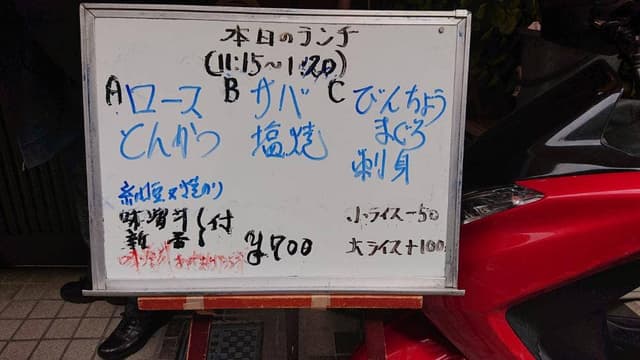 本日のランチ
(11:15〜1:20)
A ロース
とんかつ
B サバ
塩焼
C びんちょう
まぐろ
刺身
納豆又焼のり
味噌汁
新香
付
¥700
小ライス-50
大ライス+100